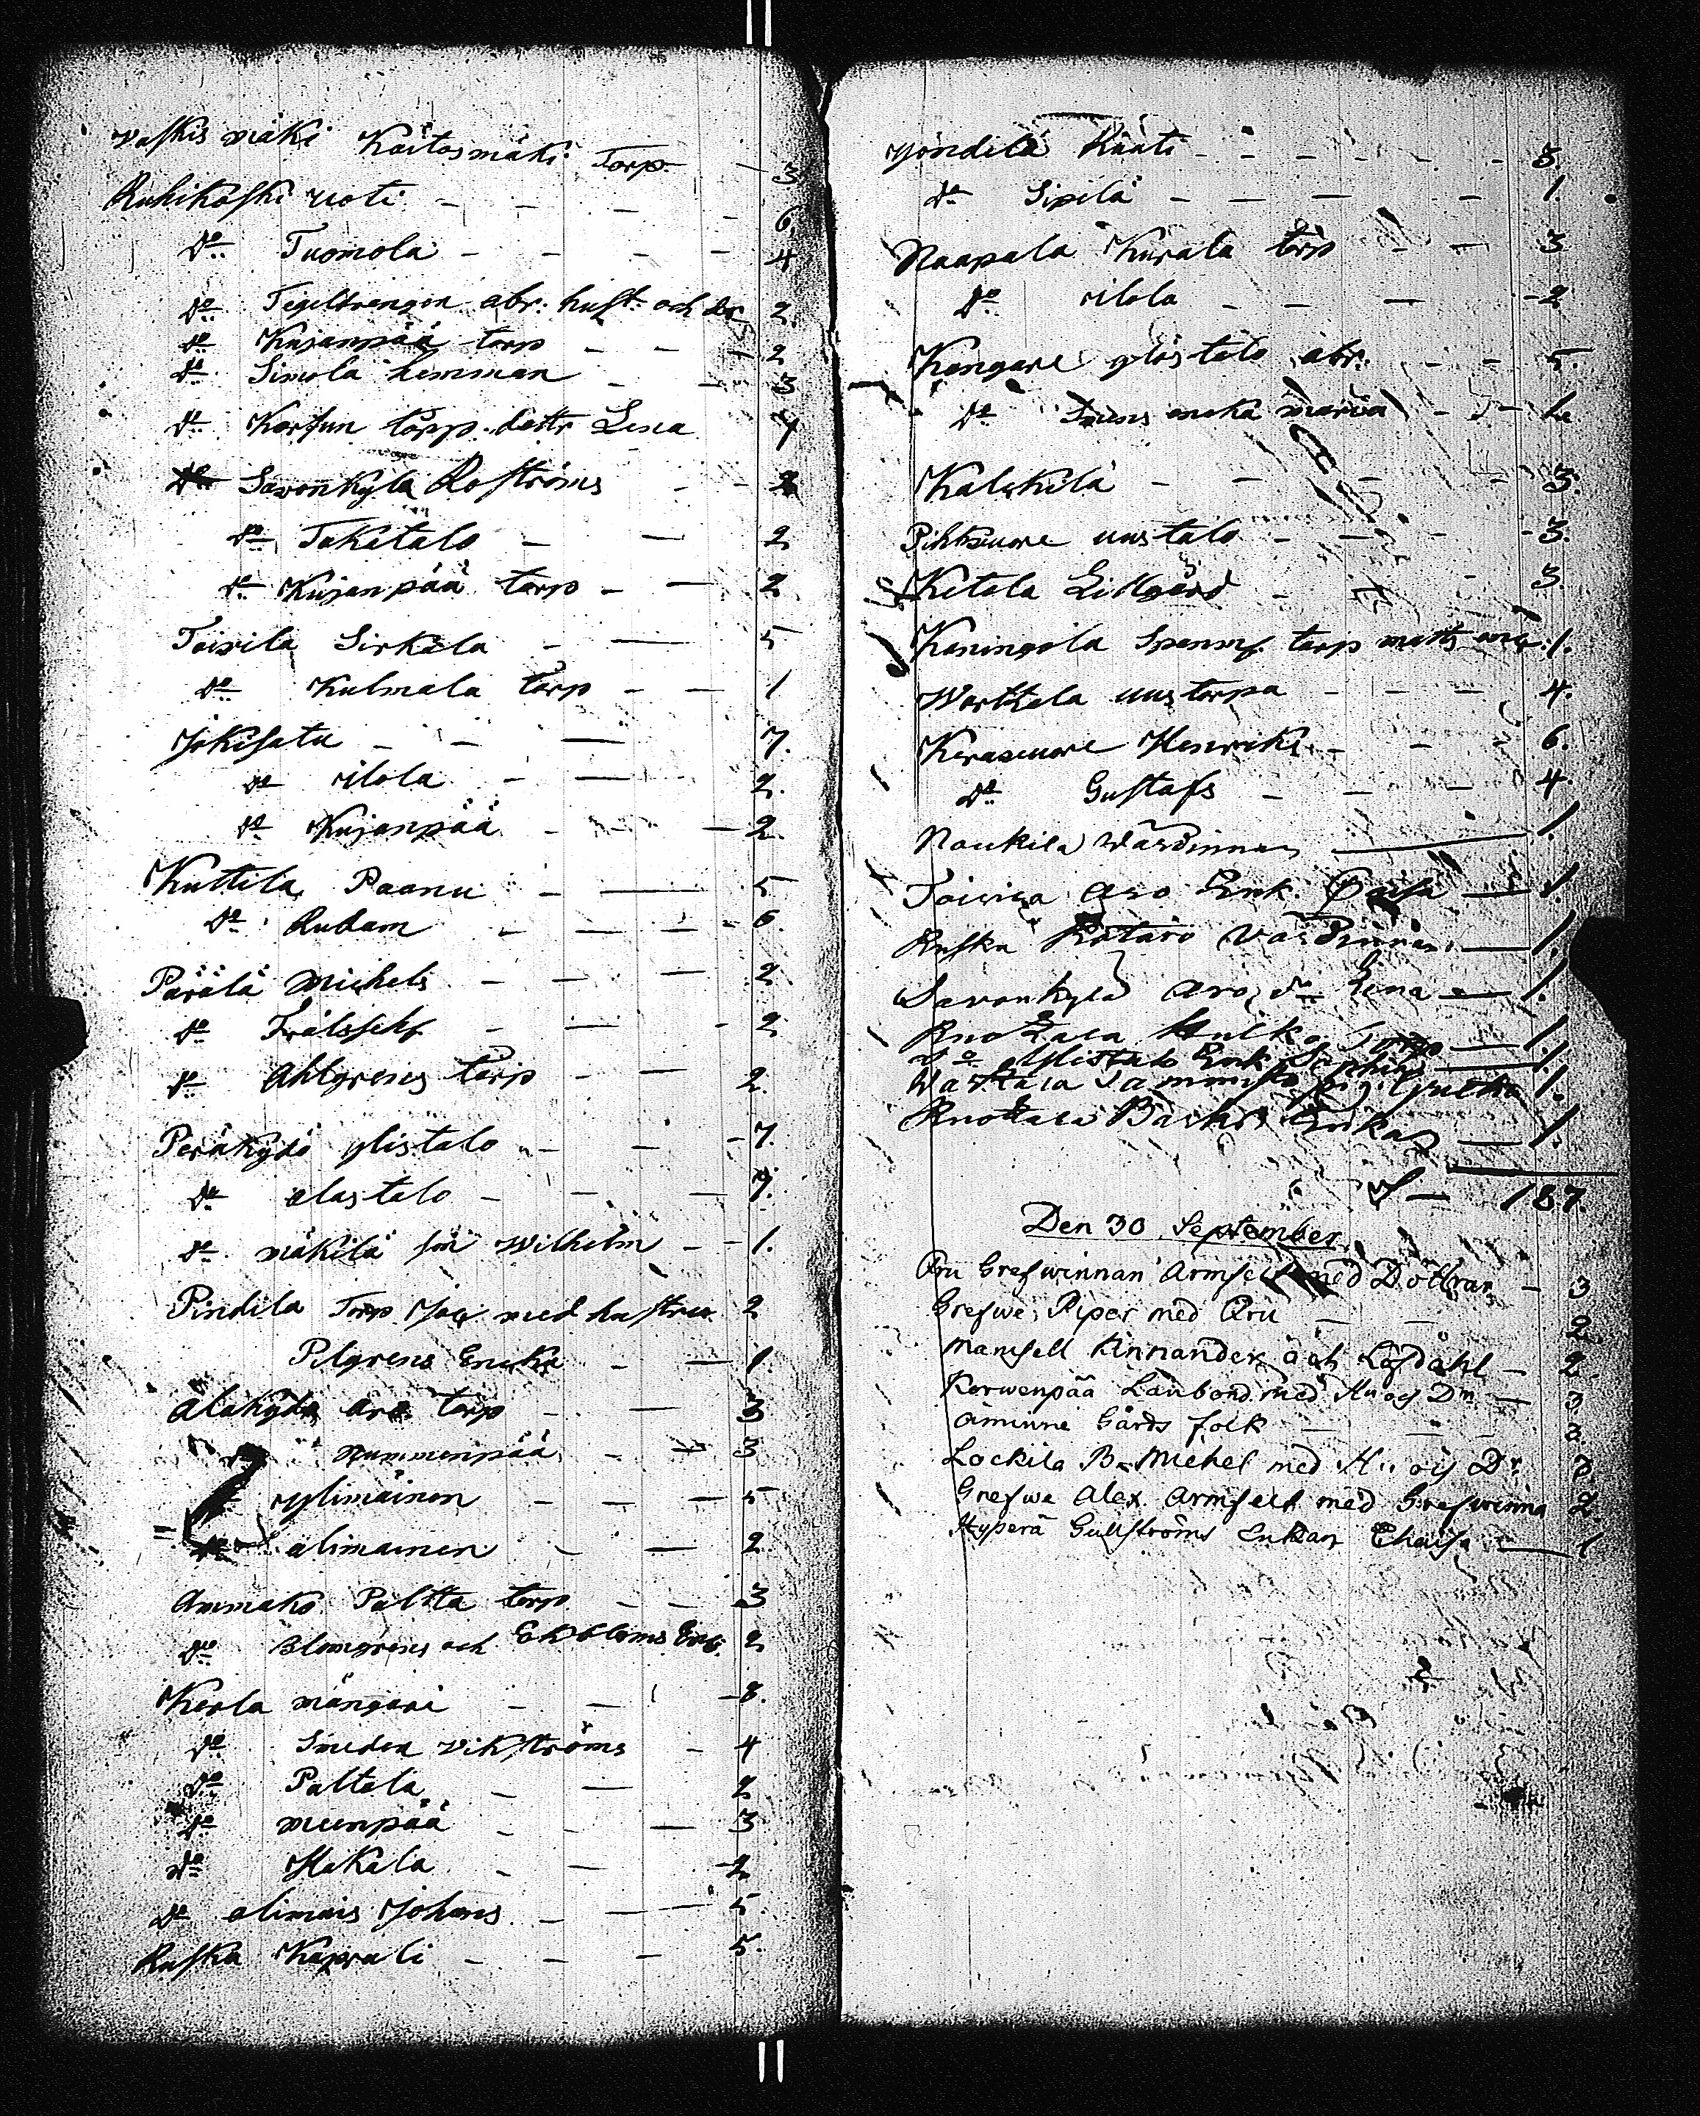 Vaskis mäki Koitosmäki Torp. — 3
Ruhikoski Uoti — — — — 6
Do Tuomola — — — — 4
Do Tegelsrengin abr. hust. och dr 2.
Do Kujanpää torp — — — 2
Do Simola hemman — — 3
Do Korfun torp. dottr Lena 7
Do Savonkylä Roströms — — 2
Do Takatalo — — 2
Do Kujanpää torp — — 2
Toivila Sirkala — — 5
Do Kulmala Torp — — 1
Jokisatu — — — 7.
Do Ilola — — 2.
Do Kujanpää — — — 2.
Kuttila Paanu — — 5
Do Rudam — — — — 6.
Pärälä Michels — — — 2
Do Frälssehf — — — 2
Do Ahlgrens torp — — — 2.
Peräkylä ylistalo — — — 7.
Do alastalo — — — 7.
Do mäkilä son Wilhelm — — 1.
Pindila Torp. Jac med hustru 2
Pilgrens Enka — — 1.
Alakylä Aro torp — — 3
Nummenpää — — 3
ylimäinen — — — 5
Do alimainen — — 2
Ammako Paltta torp — — 3
Do Blomgrens och Ekbloms Enk. 2
Kerla mängari — — — 8.
Do Smeden Vikströms — 4
Do Paltala — — 2
Do Meenpää — — — 3
Do Hakala — — — 2
Do alimais Johans — — — 5.
Ruska Kaprali — — — 5.
Yöndilä Knuuti — — — — — 3.
Do Sipilä — — — — 1.
Naapala Kurala torp — — 3
Do Ilola — — — — 2
Kangare ylöstalo abr. — — 5.
Do enka maria — — 1.
Kalikilä — — — — 3.
Pihtsuore uustalo — — — 3.
Ketola Lillgård — — 3.
Koningola torp matts 1.
Warttala uustorpa — — — 4.
Kerasuore Henriks — — — 6.
Do Gustafs — — — 4.
Naukila Wärdinnan — 1
Toivila Aro Enk. Caisa — 1.
Ruska Kotaro Värdinnan — 1.
Savonkylä Aro, do Lena — 1.
Ruotzala Hulko Torp — 1.
Do Ylistalo Enk Sophia — 1.
Wartala Sammisto 1.
Ruotzala Enkan — 1.
S— 187.
Den 30 September
Fru Grefwinnan Armfelt med Döttrar — 3
Grefwe Piper med Fru — — 2
Mamsell Kinnander och Löfdahl — 2
Korwenpää Lanbond. med Hu och Dr — 3
Åminne Gårds folk — — 3
Lockila B. Michel med Hu. och Dr 3
Grefwe Alex. Armfelt med Grefwinna 2.
Hyperä Gullströms Enkan Chaisa — 1